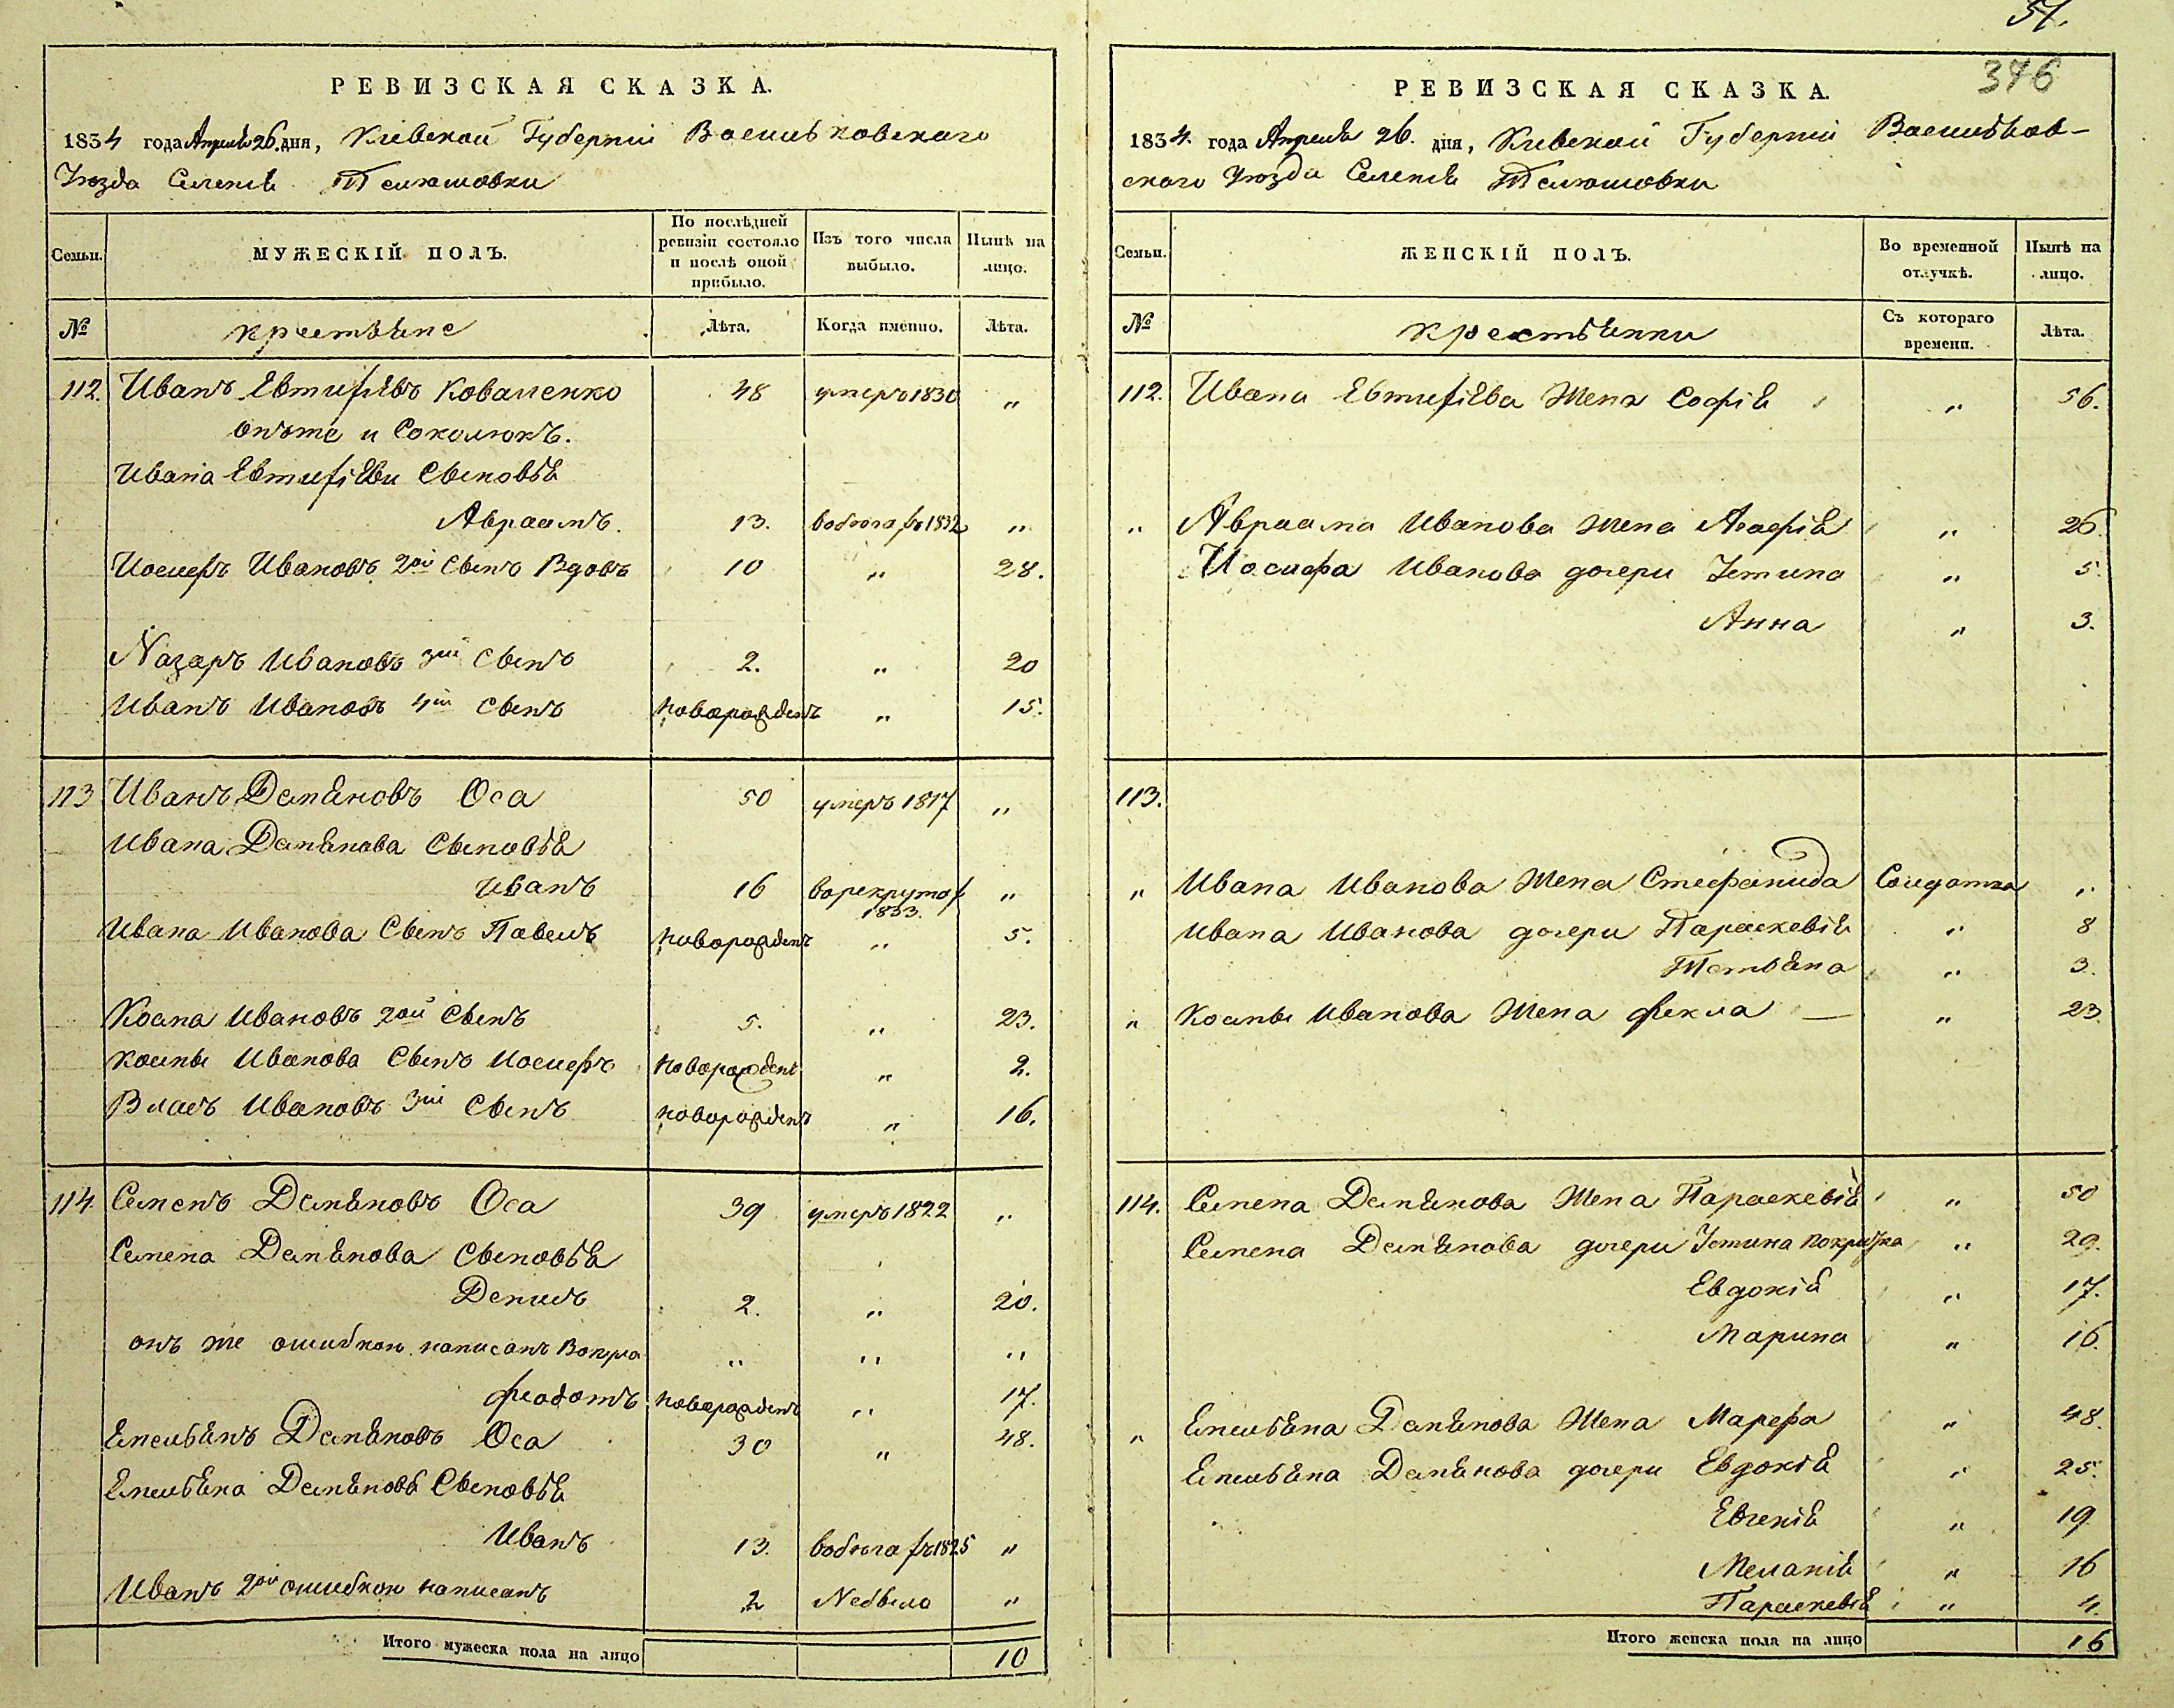 51.
376
РЕВИЗСКАЯ СКАЗКА.
1834 года Апреля 26 дня, Киевской Губернии Васильковского
Уюзда Селения Телюшовки
Семьи. МУЖЕСКІЙ ПОЛЪ. По послѣдней ревизіи состояло и послѣ оной прибыло. Изъ того числа выбыло. Нынѣ на лицо.
№ крестьяне Лѣта. Когда именно. Лѣта.
112. Иванъ Евтифіевъ Коваленко 48 умеръ 1830 „
онъже и Соколюкъ.
Ивана Евтифіева Сыновья
Авраамъ. 13. вобѣгахъ 1832 „
Иосифъ Ивановъ 2ой Сынъ Вдовъ 10 „ 28.
Назаръ Ивановъ 3ій Сынъ 2. „ 20
Иванъ Ивановъ 4ій Сынъ новорожденъ „ 15.
113 Иванъ Демяновъ Оса 50 умеръ 1817 „
Ивана Демянова Сыновья
Иванъ 16 ворекрутах „
1833.
Ивана Иванова Сынъ Павелъ новорожденъ „ 5.
Косма Ивановъ 2ой Сынъ 5. „ 23.
Космы Иванова Сынъ Иосифъ новорожденъ „ 2.
Власъ Ивановъ 3ій Сынъ новорожденъ „ 16.
114. Семенъ Демяновъ Оса 39 умеръ 1822 „
Семена Демянова Сыновья
Денисъ 2. „ 20.
онъ же ошибкою написанъ „ „ „
Феодотъ новорожденъ „ 17.
Емельянъ Демяновъ Оса 30 „ 48.
Емельяна Демянова Сыновья
Иванъ 13. вобѣгахъ 1825 „
Иванъ 2ой ошибкою написанъ 2 Небыло „
Итого мужеска пола на лицо 10
РЕВИЗСКАЯ СКАЗКА.
1834. года Апреля 26. дня, Киевской Губернии Васильков-
ского Уюзда Селения Телюшовки
Семьи. ЖЕНСКІЙ ПОЛЪ. Во временной отлучкѣ. Нынѣ на лицо.
№ крестьянки Съ котораго времени. Лѣта.
112. Ивана Евтифіева Жена Софія „ 56.
„ Авраама Иванова Жена Агафія „ 26.
Иосифа Иванова дочери Устина „ 5.
Анна „ 3.
113.
„ Ивана Иванова Жена Стефанида Солдатка „
Ивана Иванова дочери Параскевія „ 8
Татьяна „ 3.
„ Космы Иванова Жена Фекла — „ 23.
114. Семена Демянова Жена Параскевія „ 50
Семена Демянова дочери Устина покрытка „ 29.
Евдокія „ 17.
Марина „ 16.
„ Емельяна Демянова Жена Марфа „ 48.
Емельяна Демянова дочери Евдокія „ 25.
Евгенія „ 19
Меланія „ 16
Параскевія „ 4.
Итого женска пола на лицо 16